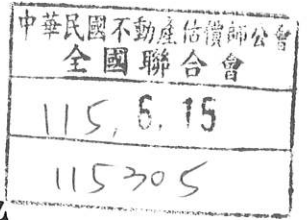 中華民國不動產估價師公會
全國聯合會
115. 6. 15
115305